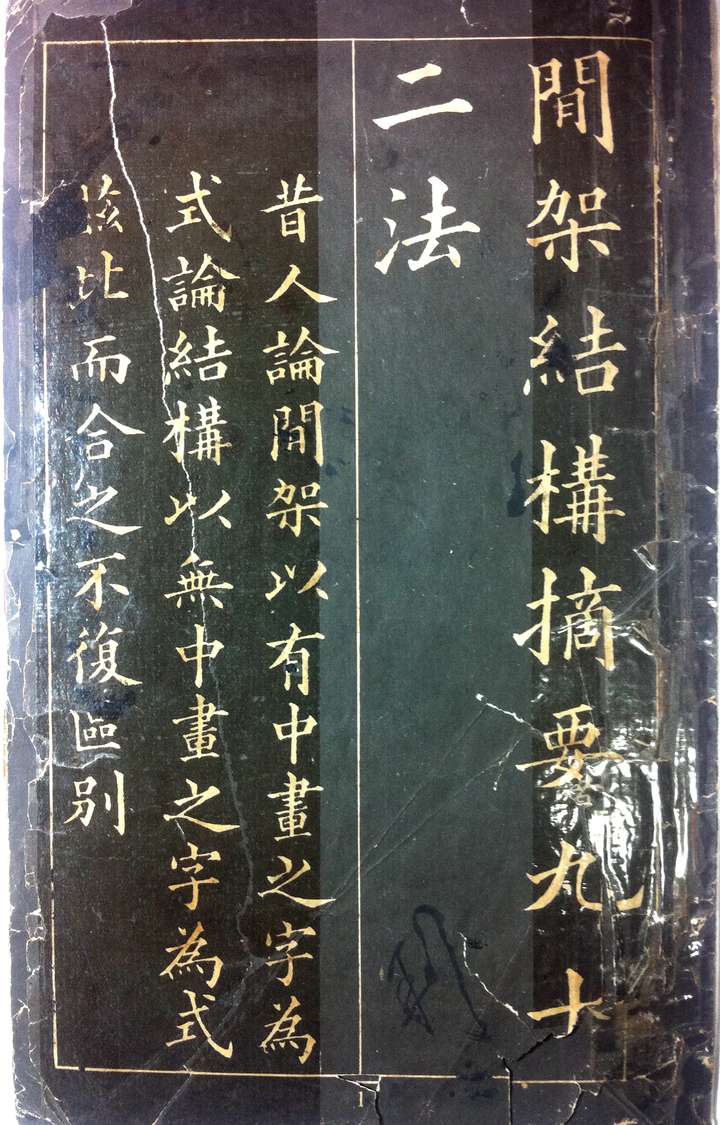 間架結構摘要九十
二法
昔人論間架以有中畫之字為
式論結構以無中畫之字為式
茲比而合之不復區別
1